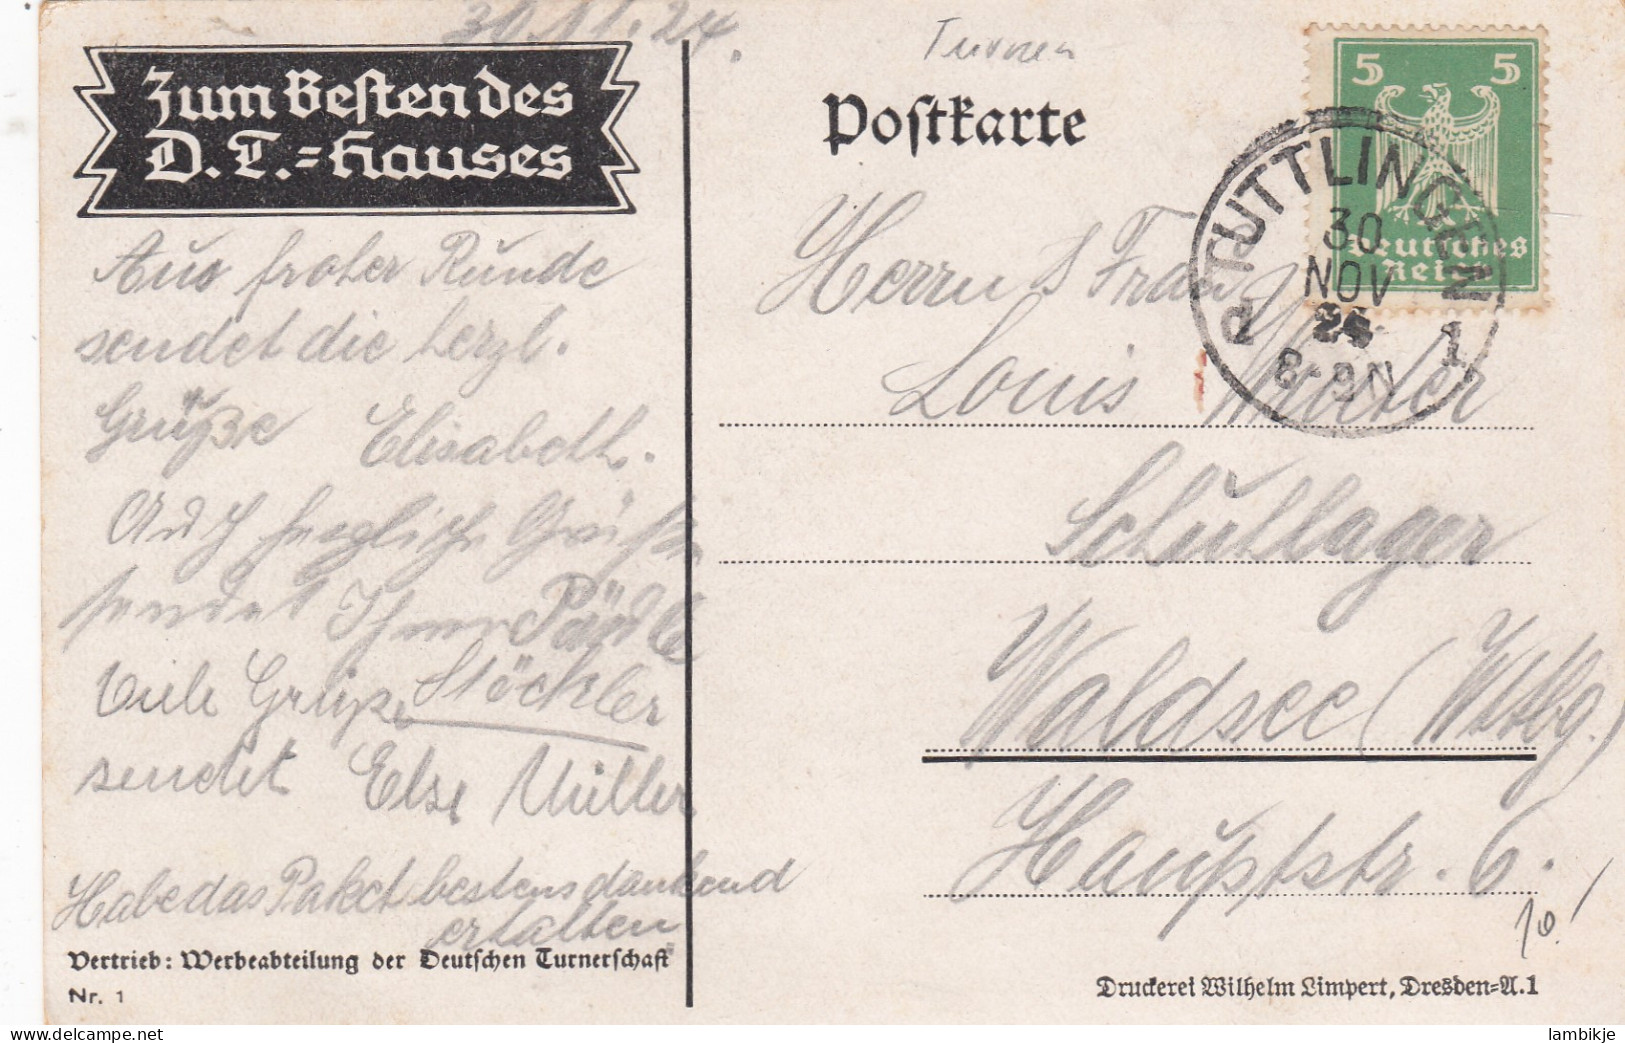 30.11.24.
Turnen
Zum Besten des
D. T.-Hauses
Postkarte
5 5
Deutsches
Reich
TUTTLINGEN
30
NOV
24
8-9N
1
Aus froher Runde
sendet die herzl.
Grüße Elisabeth.
Auch herzliche Grüße
sendet Ihnen
Stöckler
Viele Grüße
sendet Else Müller
Habe das Paket bestens dankend
erhalten
Herrn & Frau
Louis
Schuhlager
Waldsee (Wttbg.)
Hauptstr. 6.
10.
Vertrieb: Werbeabteilung der Deutschen Turnerschaft
Nr. 1
Druckerei Wilhelm Limpert, Dresden-A.1
lambikje